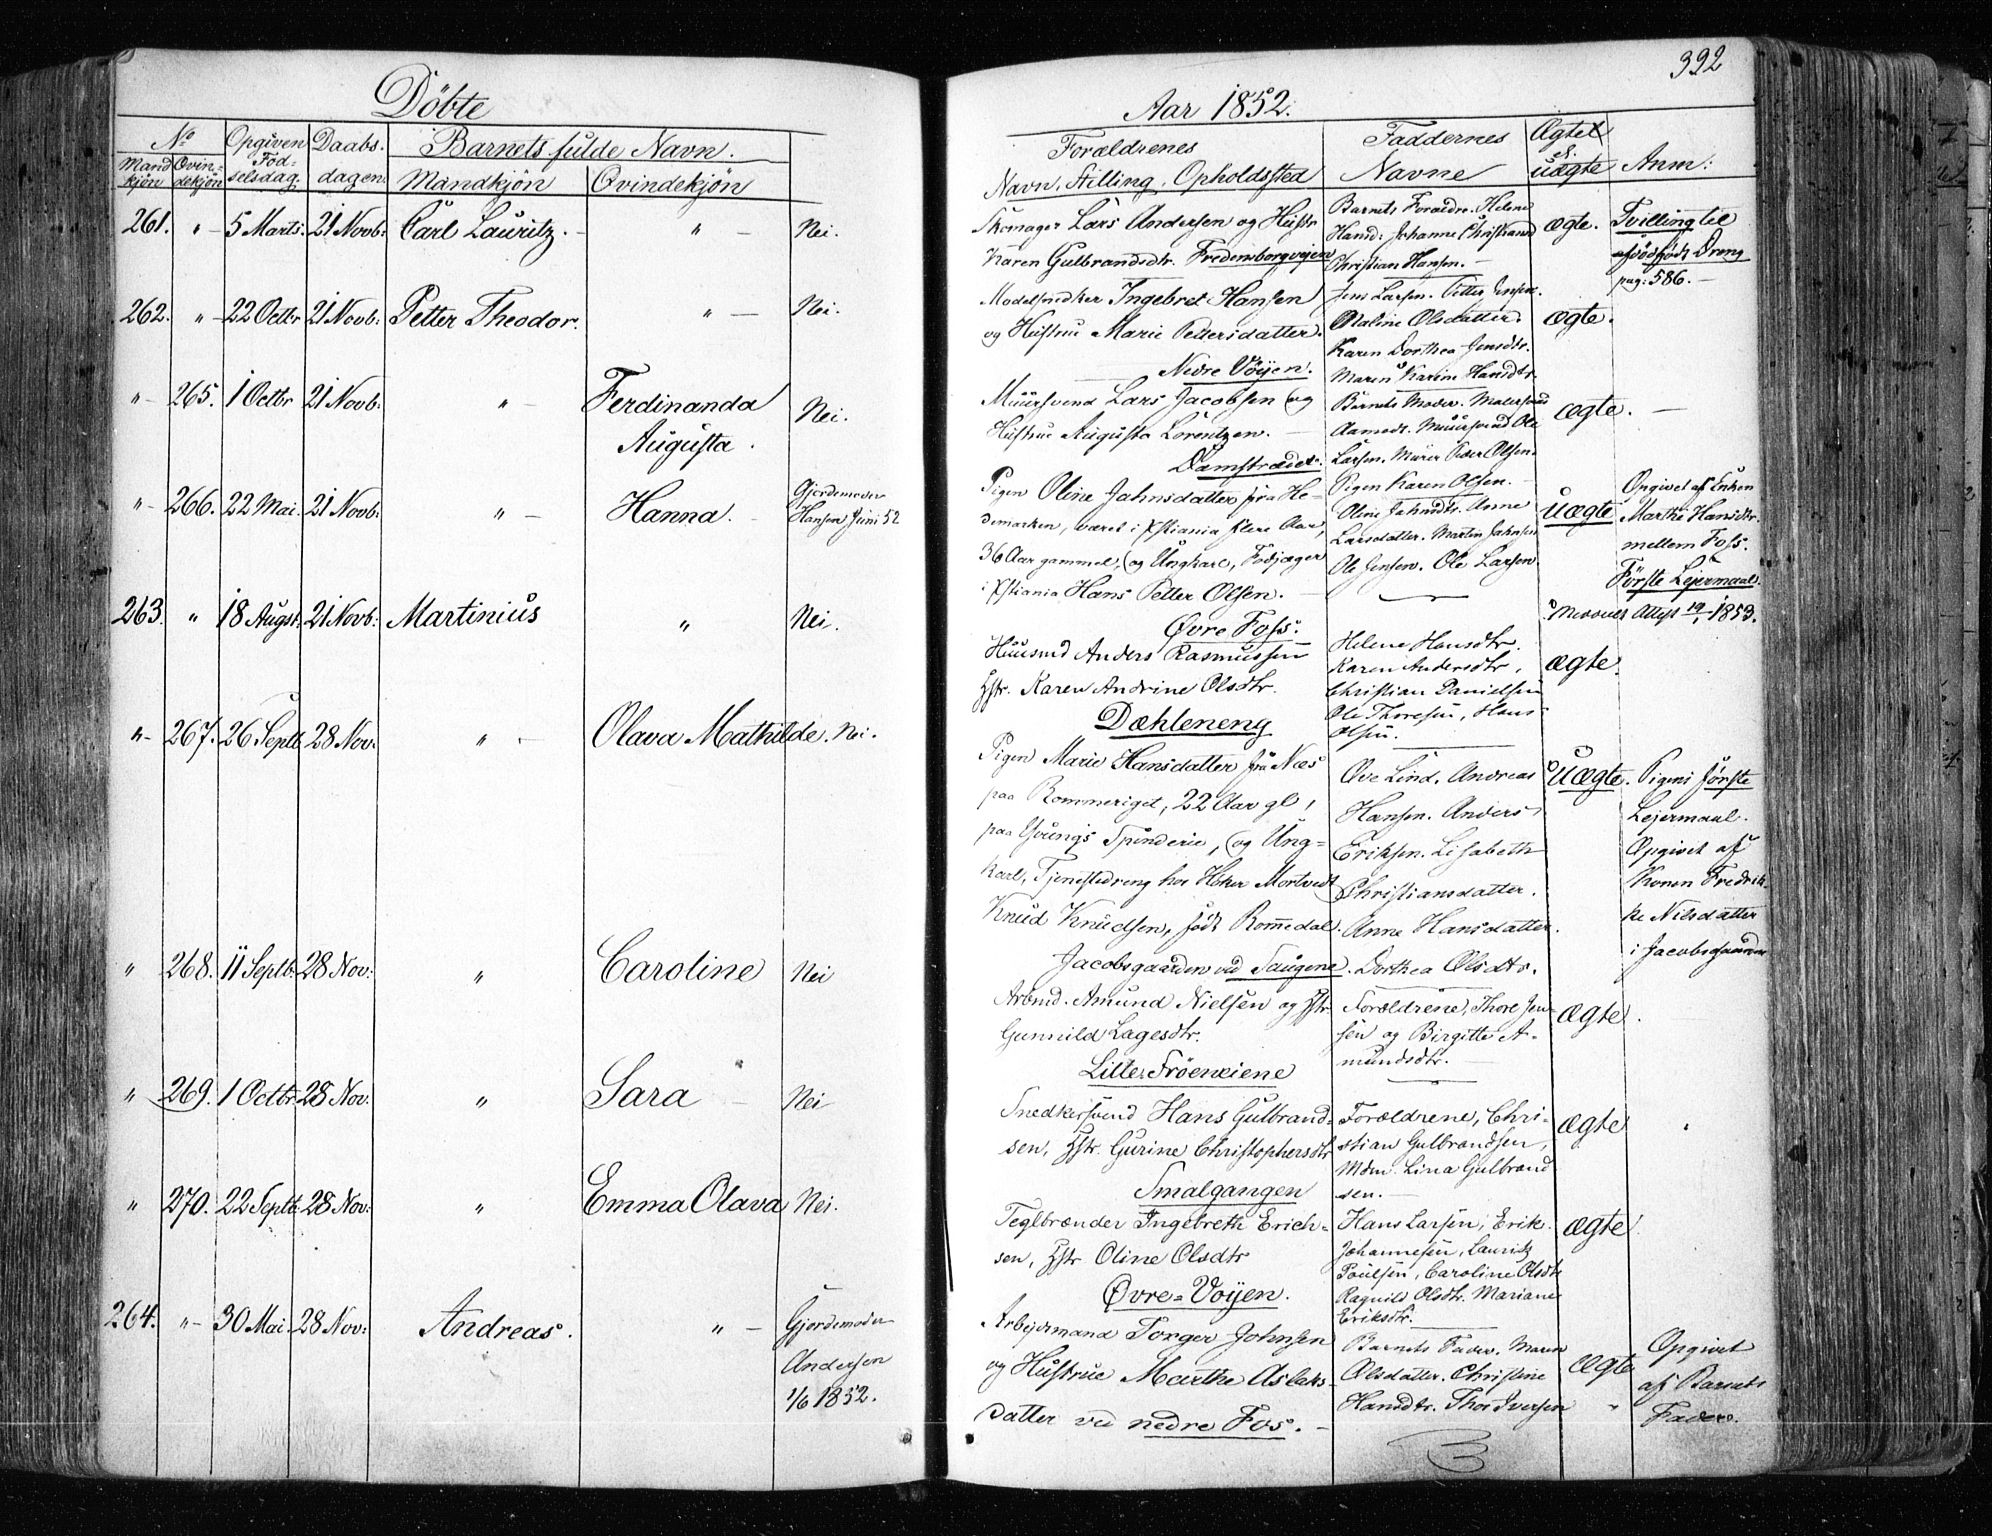 392
Döbte
Aar 1852.
No
Opgiven Fød-
selsdag.
Daabs-
dagen.
Barnets fulde Navn.
Mand
kjön
Qvin-
dekjön
Mandkjön
Qvindekjön
Forældrenes
Navn, Stilling, Opholdssted
Faddernes
Navne
Ægte
el.
uægte
Anm:
261. " 5 Marts. 21 Novb: Carl Lauritz. " Nei.
Skomager Lars Andersen og Hustr
Karen Gulbrandsdtr. Fredensborgvejen
Barnets Forældre. Helene
Hansd: Johanne Christiansd
Christian Hansen.
ægte.
Tvilling til
dødfødt Dreng
pag: 586.
262. " 22 Octbr 21 Novb: Petter Theodor. " Nei.
Modelsnedker Ingebret Hansen
og Hustrue Marie Pettersdatter.
Nedre Vöyen.
Jens Larsen. Petter Jensen.
Maline Olsdatter.
Karen Dorthea Jensdtr.
Maren Karine Hansdtr.
ægte.
" 265. 1 Octbr 21 Novb: " Ferdinanda
Augusta. Nei.
Muursvend Lars Jacobsen og
Hustrue Augusta Lorentzen.
Damstrædet.
Barnets Moder. Malersvend
Aamodt. Muursvend Ole
Larsen. Murer Peder Olsen.
Pigen Karen Olsen.
ægte.
" 266. 22 Mai. 21 Novb: " Hanna.
Gjordemoder
Hansen Juni 52
Pigen Oline Jahnsdatter fra He-
demarken, været i Xstiania flere Aar,
36 Aar gammel, og Ungkarl, Fodjæger
i Xstiania Hans Petter Olsen.
Øvre Foss.
Oline Jahnsdtr. Anne
Larsdatter. Martin Jahnsen
Ole Jensen. Ole Larsen.
uægte
Opgivet af Enken
Marthe Hansdtr.
mellem Foss.
Förste Lejermaal.
Attest 19/1 1853.
263. " 18 Augst: 21 Novb: Martinius " Nei.
Huusmd Anders Rasmussen
Hstr. Karen Andrine Olsdtr.
Dæhleneng
Helene Hansdtr.
Karen Andersdtr,
Christian Danielsen
Ole Thoresen, Hans
Olsen.
ægte.
" 267. 26 Septb 28 Nov: " Olava Mathilde. Nei.
Pigen Marie Hansdatter fra Næs
paa Rommeriget, 22 Aar gl,
paa Youngs Spinderie, og Ung-
karl, Tjenestedreng hos Høker Mortvedt
Knud Knudsen, født Romedal.
Jacobsgaarden ved Saugene.
Ove Lind. Andreas
Hansen. Anders
Eriksen. Lisabeth
Christiansdatter.
Anne Hansdatter.
Dorthea Olsdtr.
Uægte.
Pigens förste
Lejermaal.
Opgivet af
Konen Fredrik-
ke Nilsdatter
i Jacobsgaarden
" 268. 11 Septb. 28 Nov: " Caroline Nei
Arbmd. Amund Nielsen og Hstr.
Gunnild Lagesdtr.
Lille Fröenseiene
Forældrene, Thore Jen-
sen og Birgitte A-
mundsdtr.
ægte.
" 269. 1 Octbr. 28 Nov: " Sara Nei
Snedkersvend Hans Gulbrand-
sen, Hstr. Gurine Christophersdtr
Smalgangen
Forældrene, Chri-
stian Gulbrandsen,
Mdm. Lina Gulbrand
sen.
ægte
" 270. 22 Septb: 28 Nov: " Emma Olava Nei.
Teglbrænder Ingebreth Erich-
sen, Hstr Oline Olsdtr
Øvre-Voyen.
Hans Larsen, Erik
Johannesen, Lauritz
Poulsen, Caroline Olsdtr
Ragnild Olsdtr. Mariane
Eriksdtr.
ægte
264. " 30 Mai. 28 Nov: Andreas. "
Gjordemoder
Andersen
1/6 1852.
Arbejdsmand Torger Johnsen
og Hustrue Marthe Aslaks-
datter ved nedre Fos.
Barnets Fader. Maren
Olsdatter. Christine
Hansdtr. Thor Iversen
ægte
Opgivet
af Barnets
Fader.